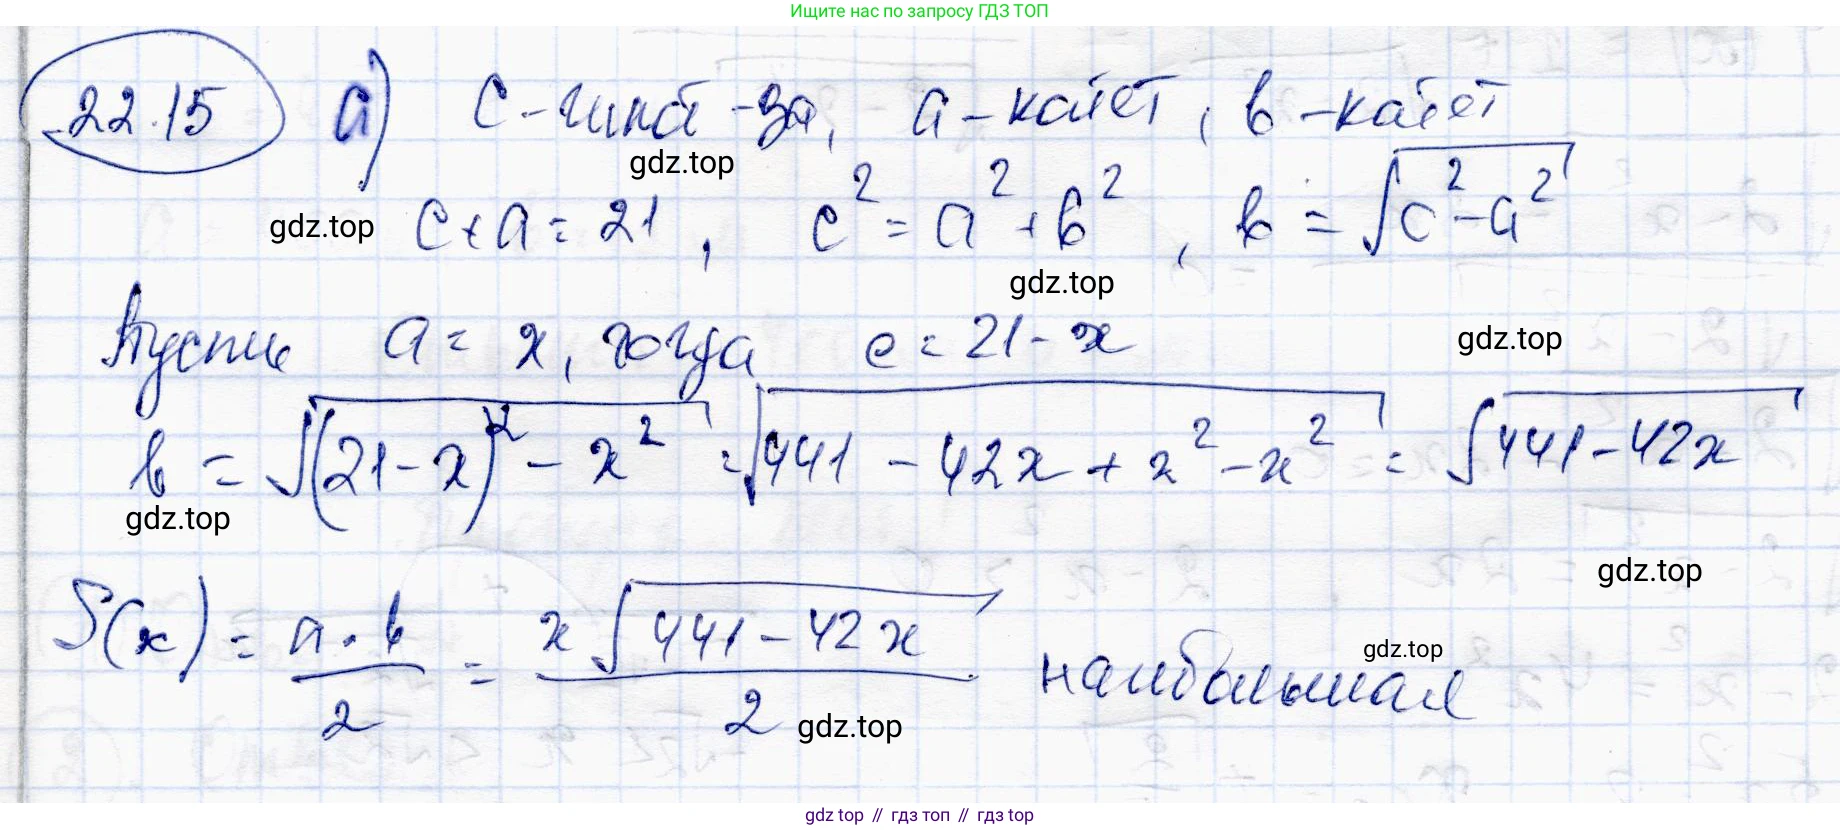 Ищите нас по запросу ГДЗ ТОП
22.15 а) c - гипот-за, a - катет, b - катет
gdz.top
gdz.top c + a = 21, c² = a² + b², b = √(c² - a²)
gdz.top
Пусть a = x, тогда c = 21 - x gdz.top
b = √((21 - x)² - x²) = √(441 - 42x + x² - x²) = √(441 - 42x)
gdz.top
gdz.top
S(x) = (a · b)/2 = (x√(441 - 42x))/2 наибольшая
gdz.top
gdz.top
gdz top // гдз топ // gdz top